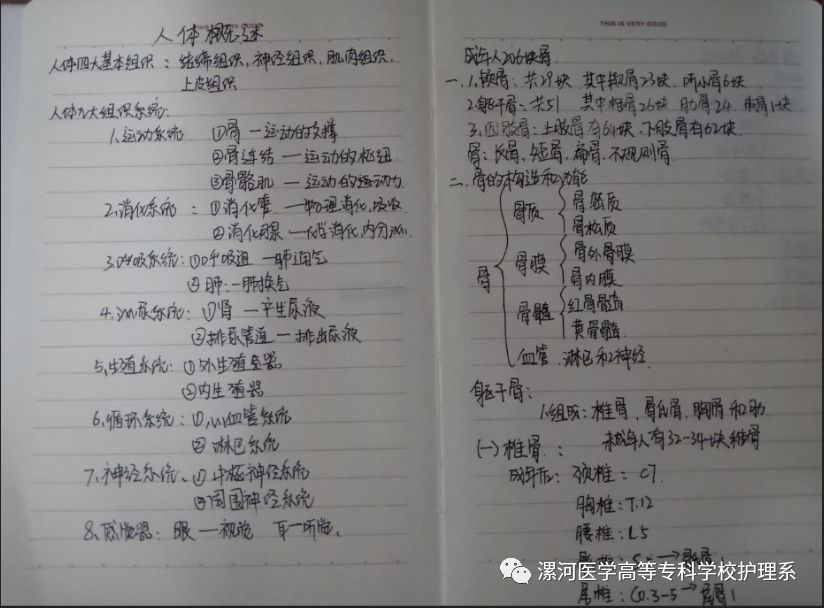 THIS IS VERY GOOD
人体概述
人体四大基本组织：结缔组织,神经组织,肌肉组织,
上皮组织
人体九大组织系统:
1.运动系统 ①骨—运动的支撑
②骨连结—运动的枢纽
③骨骼肌—运动的运动力
2.消化系统：①消化管—物理消化,吸收
②消化腺—化学消化,内分泌
3.呼吸系统:①呼吸道—肺通气
②肺:—肺换气
4.泌尿系统:①肾—产生尿液
②排尿管道—排出尿液
5.生殖系统:①外生殖器
②内生殖器
6.循环系统:①心血管系统
②淋巴系统
7.神经系统、①中枢神经系统
②周围神经系统
8.感觉器:眼—视觉 耳—听觉、
THIS IS VERY GOOD
成年人206块骨
一.1.颅骨:共29块 其中颅骨23块、听小骨6块
2.躯干骨:共51 其中椎骨26块 肋骨24、胸骨1块
3.四肢骨:上肢骨有64块、下肢骨有62块.
骨:长骨、短骨、扁骨、不规则骨
二、骨的构造和功能
骨
骨质 骨密质
骨松质
骨膜 骨外骨膜
骨内膜
骨髓 红骨骨髓
黄骨髓
血管、淋巴和神经
躯干骨:
1.组成:椎骨、骨、胸骨和肋
(一)椎骨: 未成年人有32-34块椎骨
成年后:颈椎:C7
胸椎:T.12
腰椎:L5
尾椎:Co.3-5→尾骨1
漯河医学高等专科学校护理系